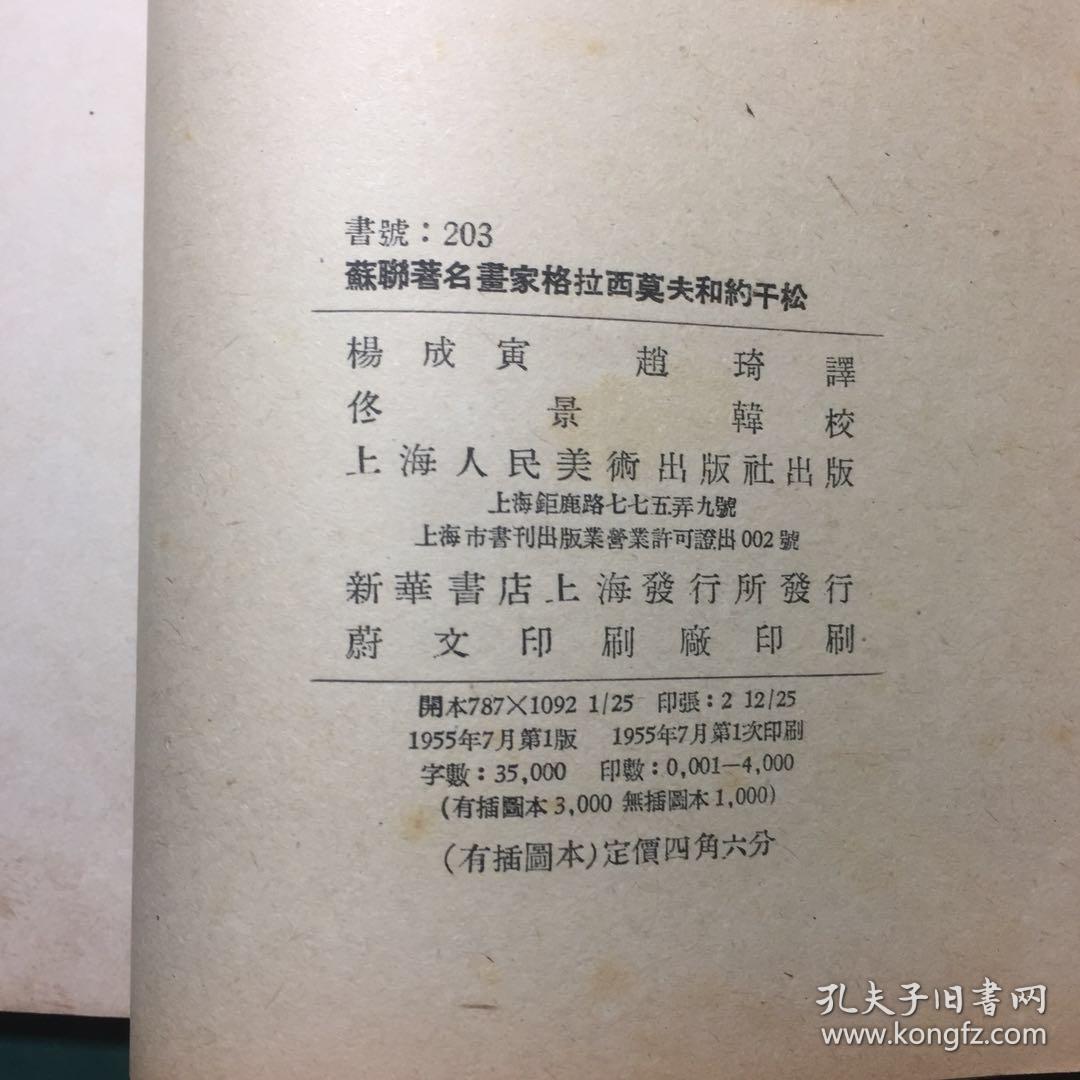 書號：203
蘇聯著名畫家格拉西莫夫和約干松
楊成寅 趙琦譯
佟景韓校
上海人民美術出版社出版
上海鉅鹿路七七五弄九號
上海市書刊出版業營業許可證出002號
新華書店上海發行所發行
蔚文印刷廠印刷
開本787×1092 1/25 印張：2 12/25
1955年7月第1版 1955年7月第1次印刷
字數：35,000 印數：0,001—4,000
(有插圖本3,000 無插圖本1,000)
(有插圖本)定價四角六分
孔夫子旧书网
www.kongfz.com